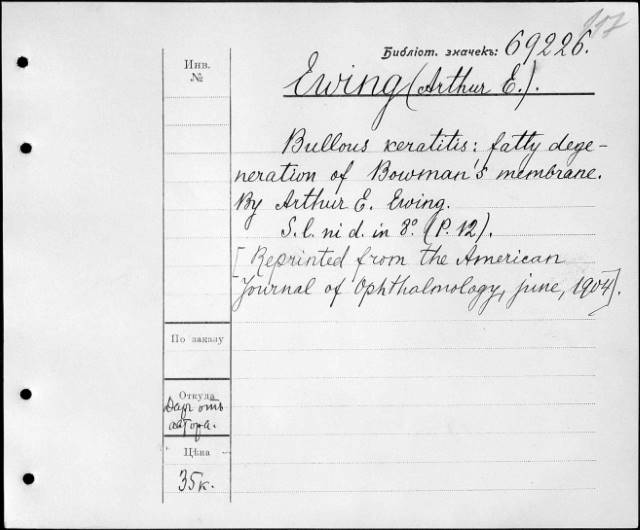 107
Библіот. значекъ: 69226.
Инв.
№
Ewing (Arthur E.).
Bullous keratitis: fatty dege-
neration of Bowman's membrane.
By Arthur E. Ewing.
S. l. ni d. in 8º. (P. 12).
[Reprinted from the American
Journal of Ophthalmology, june, 1904].
По заказу
Откуда
Даръ отъ
автора.
Цѣна
35 к.